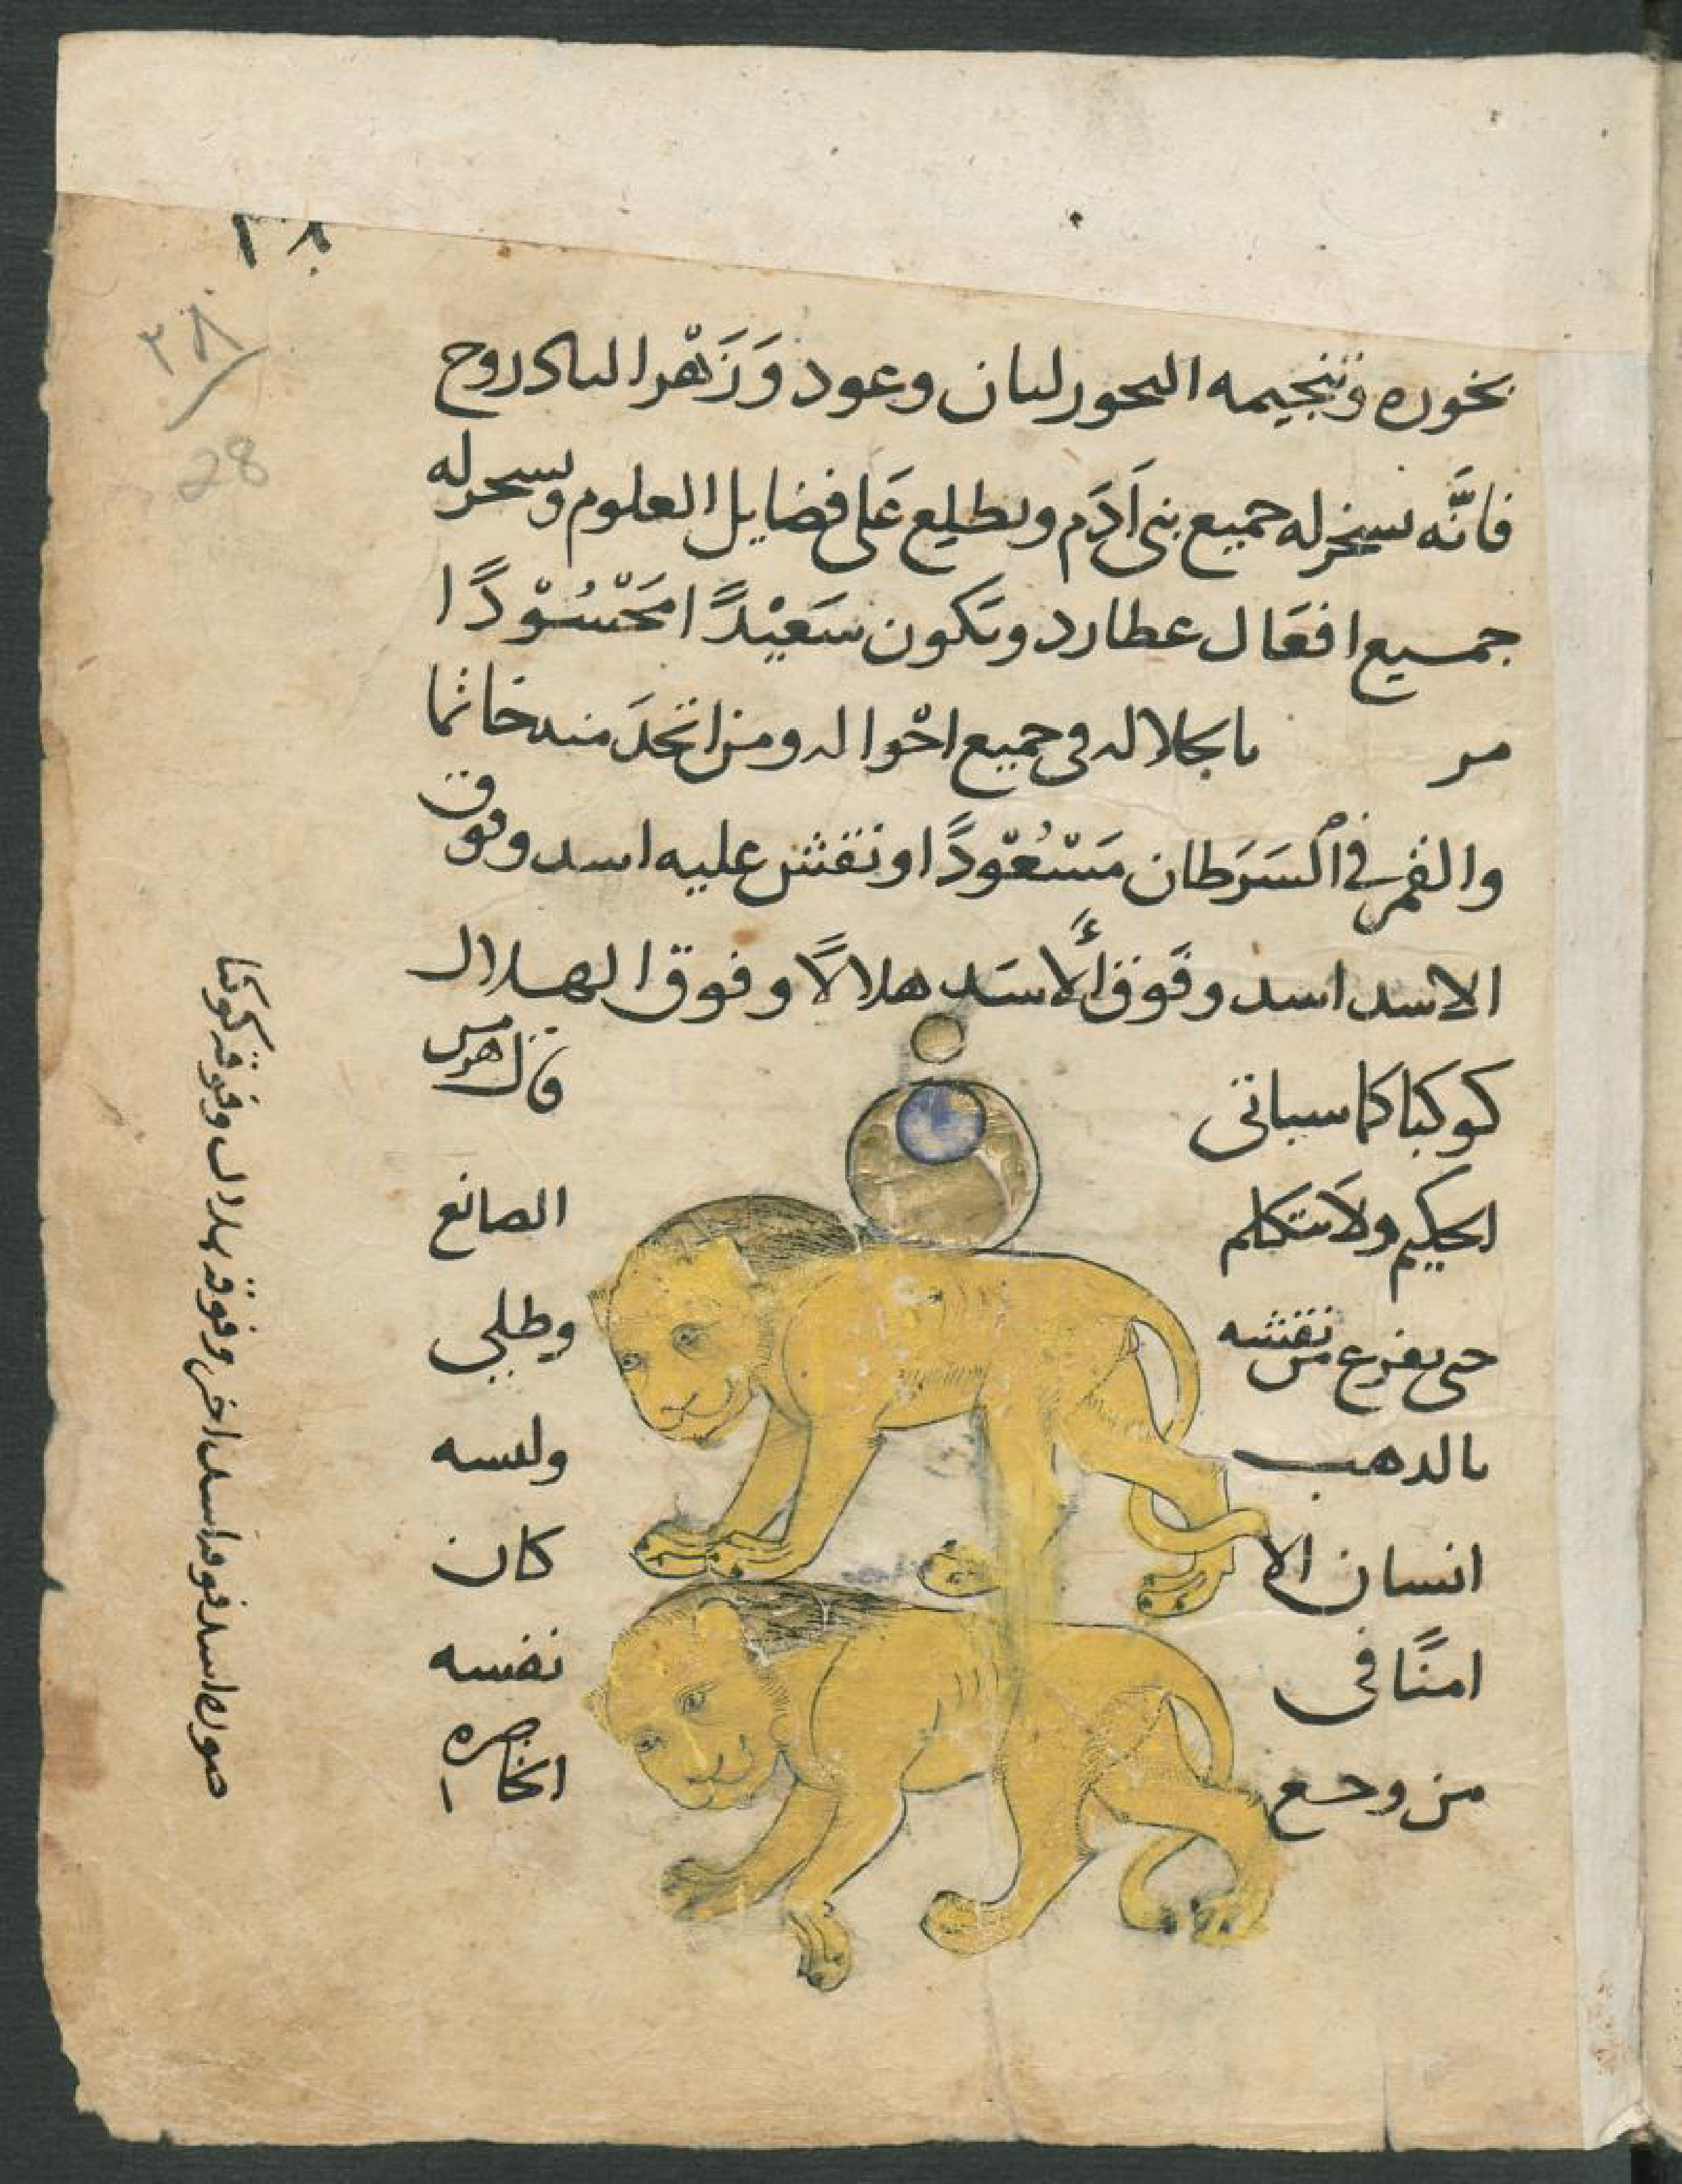 ٢٨
٢٨
28
بخوره وتنجيمه البحور لبان وعود وَزَهْر البادروح
فانَّه يسخر له جميع بنى آدَم ويطلع عَلى فضايل العلوم ويسحر له
جميع افعَال عطارد وتكون سَعيْدًا مَحْسُوْدًا
مر باجلاله فى جميع احْواله ومن اتخدَ منه خاتما
والقمر فى السَرَطان مَسْعُوْدًا ونقش عليه اسد وفوق
الاسد اسد وفَوق الأسَد هلالًا وفوق الهلال
كوكبا كما سياتى قال هرمس
الحكيم ولا يتكلم الصانع
حتى يفرع من نقشه وطلى
بالدهب ولبسه
انسان الا كان
امنًا فى نفسه
من وجع الخاصره
صوره اسد فوقه اسد اخر وفوقه هلال وفوقه كوكبا